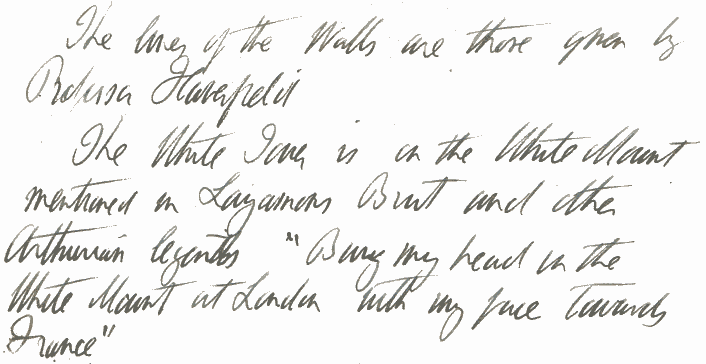 The lines of the Walls are those given by
Professor Haverfield
The White Tower is on the White Mount
mentioned in Layamons Brut and other
Arthurian legends "Bury my head in the
White Mount at London with my face towards
France"